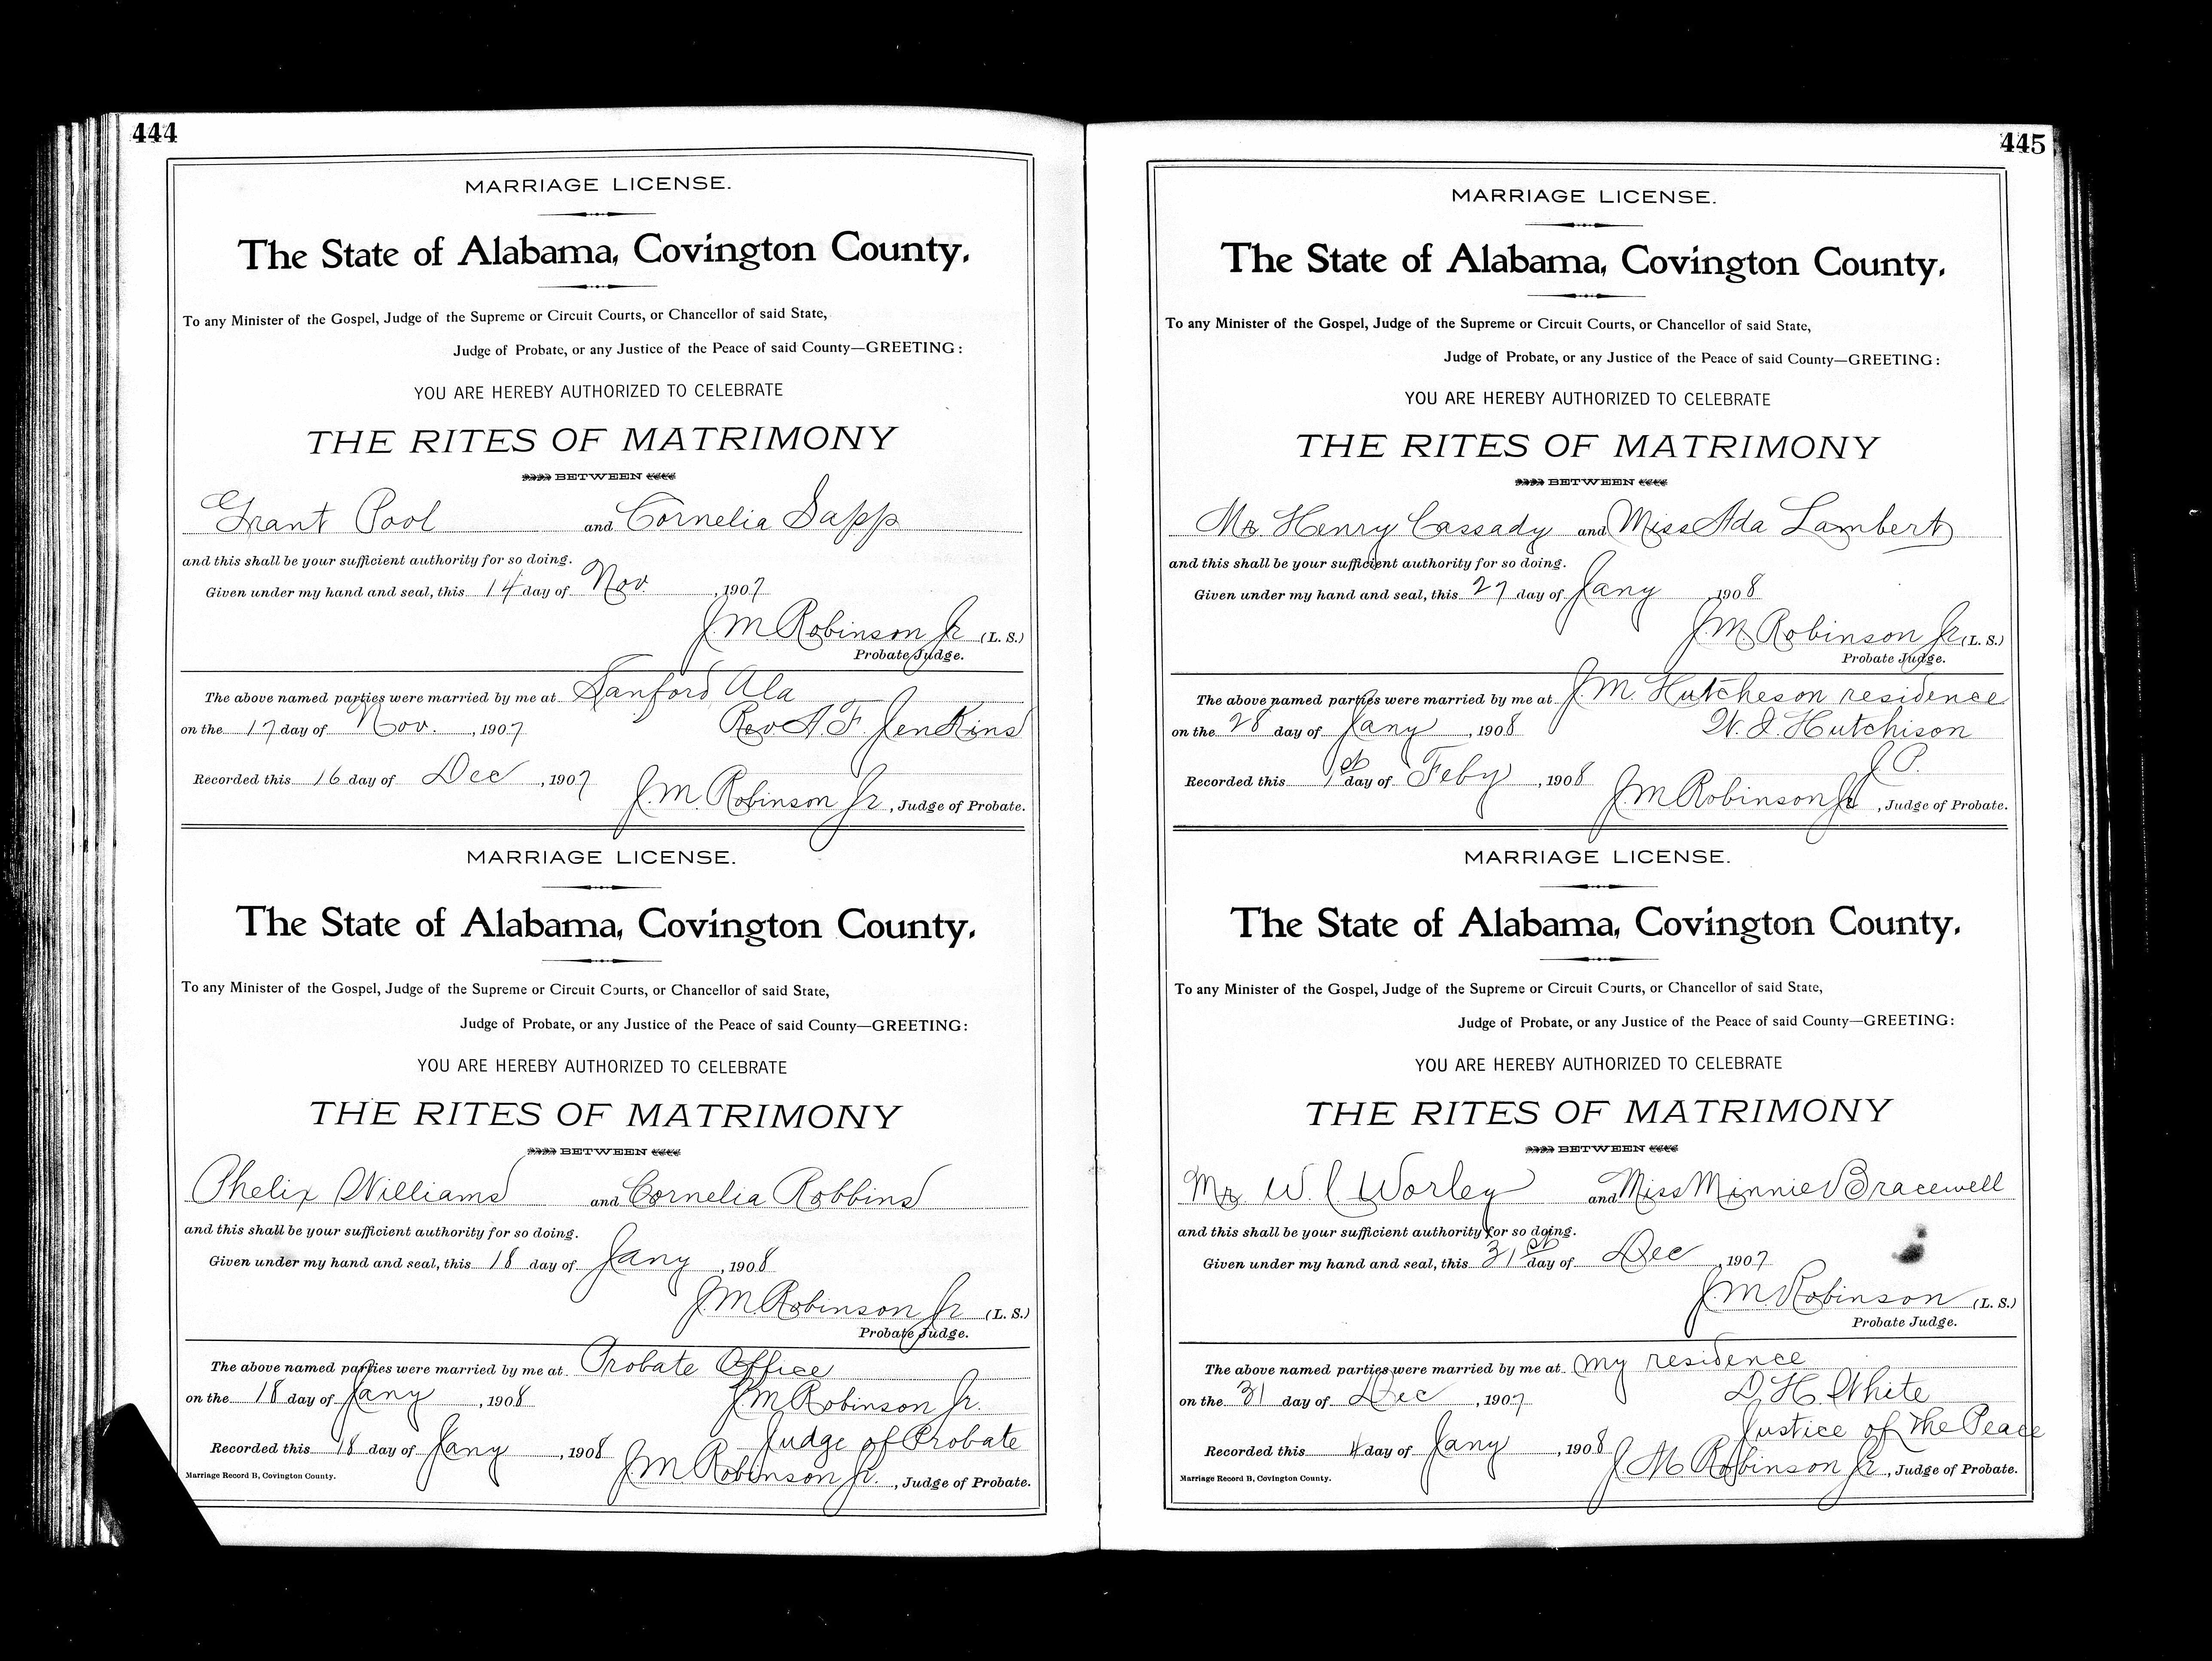 444
MARRIAGE LICENSE.
The State of Alabama, Covington County.
To any Minister of the Gospel, Judge of the Supreme or Circuit Courts, or Chancellor of said State,
Judge of Probate, or any Justice of the Peace of said County—GREETING:
YOU ARE HEREBY AUTHORIZED TO CELEBRATE
THE RITES OF MATRIMONY
BETWEEN
Grant Pool and Cornelia Sapp
and this shall be your sufficient authority for so doing.
Given under my hand and seal, this 14 day of Nov. , 1907
J. M. Robinson Jr (L. S.)
Probate Judge.
The above named parties were married by me at Sanford Ala
on the 17 day of Nov. , 1907 Rev A. F. Jenkins
Recorded this 16 day of Dec , 1907
J. M. Robinson Jr , Judge of Probate.
MARRIAGE LICENSE.
The State of Alabama, Covington County.
To any Minister of the Gospel, Judge of the Supreme or Circuit Courts, or Chancellor of said State,
Judge of Probate, or any Justice of the Peace of said County—GREETING:
YOU ARE HEREBY AUTHORIZED TO CELEBRATE
THE RITES OF MATRIMONY
BETWEEN
Phelix Williams and Cornelia Robbins
and this shall be your sufficient authority for so doing.
Given under my hand and seal, this 18 day of Jany , 1908
J. M. Robinson Jr (L. S.)
Probate Judge.
The above named parties were married by me at Probate Office
on the 18 day of Jany , 1908 J. M. Robinson Jr.
Judge of Probate
Recorded this 18 day of Jany , 1908
J. M. Robinson Jr. , Judge of Probate.
Marriage Record B, Covington County.
445
MARRIAGE LICENSE.
The State of Alabama, Covington County.
To any Minister of the Gospel, Judge of the Supreme or Circuit Courts, or Chancellor of said State,
Judge of Probate, or any Justice of the Peace of said County—GREETING:
YOU ARE HEREBY AUTHORIZED TO CELEBRATE
THE RITES OF MATRIMONY
BETWEEN
Mr. Henry Cassady and Miss Ada Lambert
and this shall be your sufficient authority for so doing.
Given under my hand and seal, this 27 day of Jany , 1908
J. M. Robinson Jr (L. S.)
Probate Judge.
The above named parties were married by me at J. M. Hutcheson residence
on the 28 day of Jany , 1908 W. J. Hutchison
J. P.
Recorded this 1st day of Feby , 1908
J M Robinson Jr , Judge of Probate.
MARRIAGE LICENSE.
The State of Alabama, Covington County.
To any Minister of the Gospel, Judge of the Supreme or Circuit Courts, or Chancellor of said State,
Judge of Probate, or any Justice of the Peace of said County—GREETING:
YOU ARE HEREBY AUTHORIZED TO CELEBRATE
THE RITES OF MATRIMONY
BETWEEN
Mr. W. C Worley and Miss Minnie Bracewell
and this shall be your sufficient authority for so doing.
Given under my hand and seal, this 31st day of Dec , 1907
J. M. Robinson (L. S.)
Probate Judge.
The above named parties were married by me at my residence
on the 31 day of Dec , 1907 D. H. White
Justice of the Peace
Recorded this 4 day of Jany , 1908
J M Robinson Jr , Judge of Probate.
Marriage Record B, Covington County.